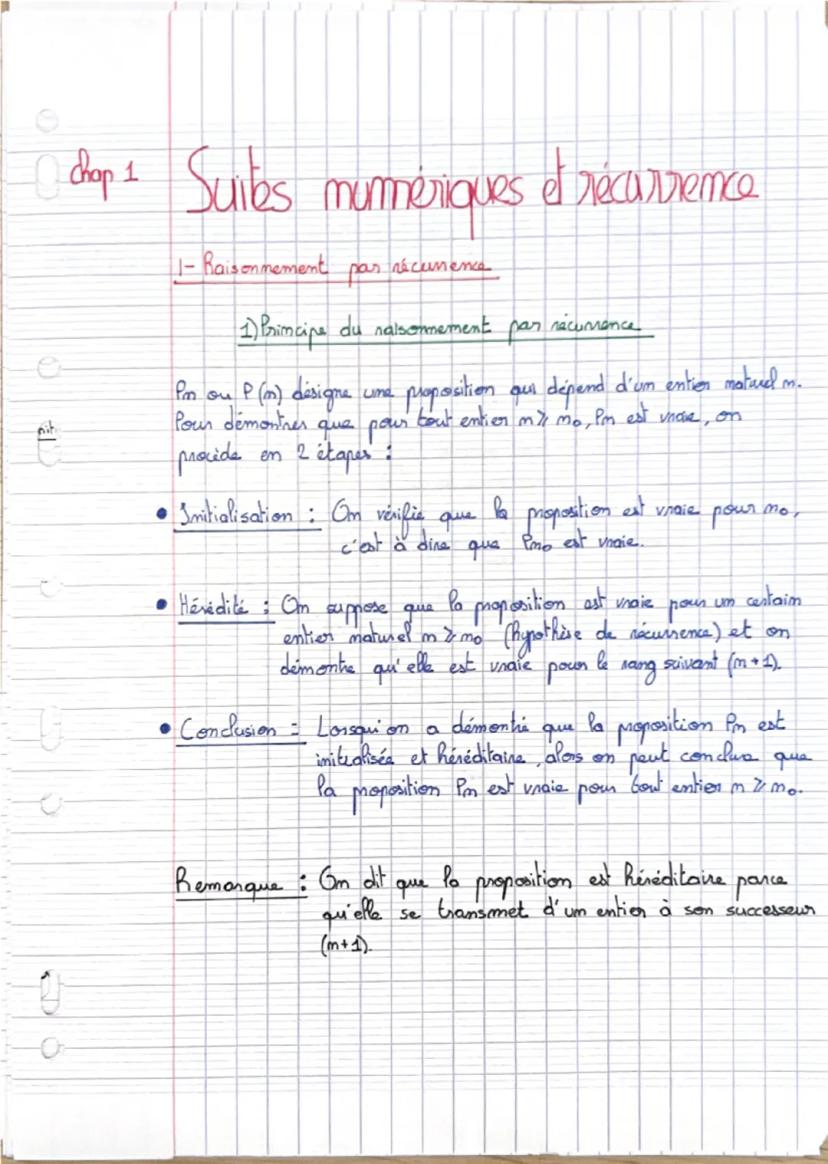 chap 1 Suites numériques et récurrence
1- Raisonnement par récurrence
1) Principe du raisonnement par récurrence
Pn ou P(n) désigne une proposition qui dépend d'un entier naturel n.
Pour démontrer que pour tout entier n ≥ n₀, Pn est vraie, on
procède en 2 étapes :
• Initialisation : On vérifie que la proposition est vraie pour n₀,
c'est à dire que Pn₀ est vraie.
• Hérédité : On suppose que la proposition est vraie pour un certain
entier naturel n ≥ n₀ (hypothèse de récurrence) et on
démontre qu'elle est vraie pour le rang suivant (n+1).
• Conclusion = Lorsqu'on a démontré que la proposition Pn est
initialisée et héréditaire, alors on peut conclure que
la proposition Pn est vraie pour tout entier n ≥ n₀.
Remarque : On dit que la proposition est héréditaire parce
qu'elle se transmet d'un entier à son successeur
(n+1).